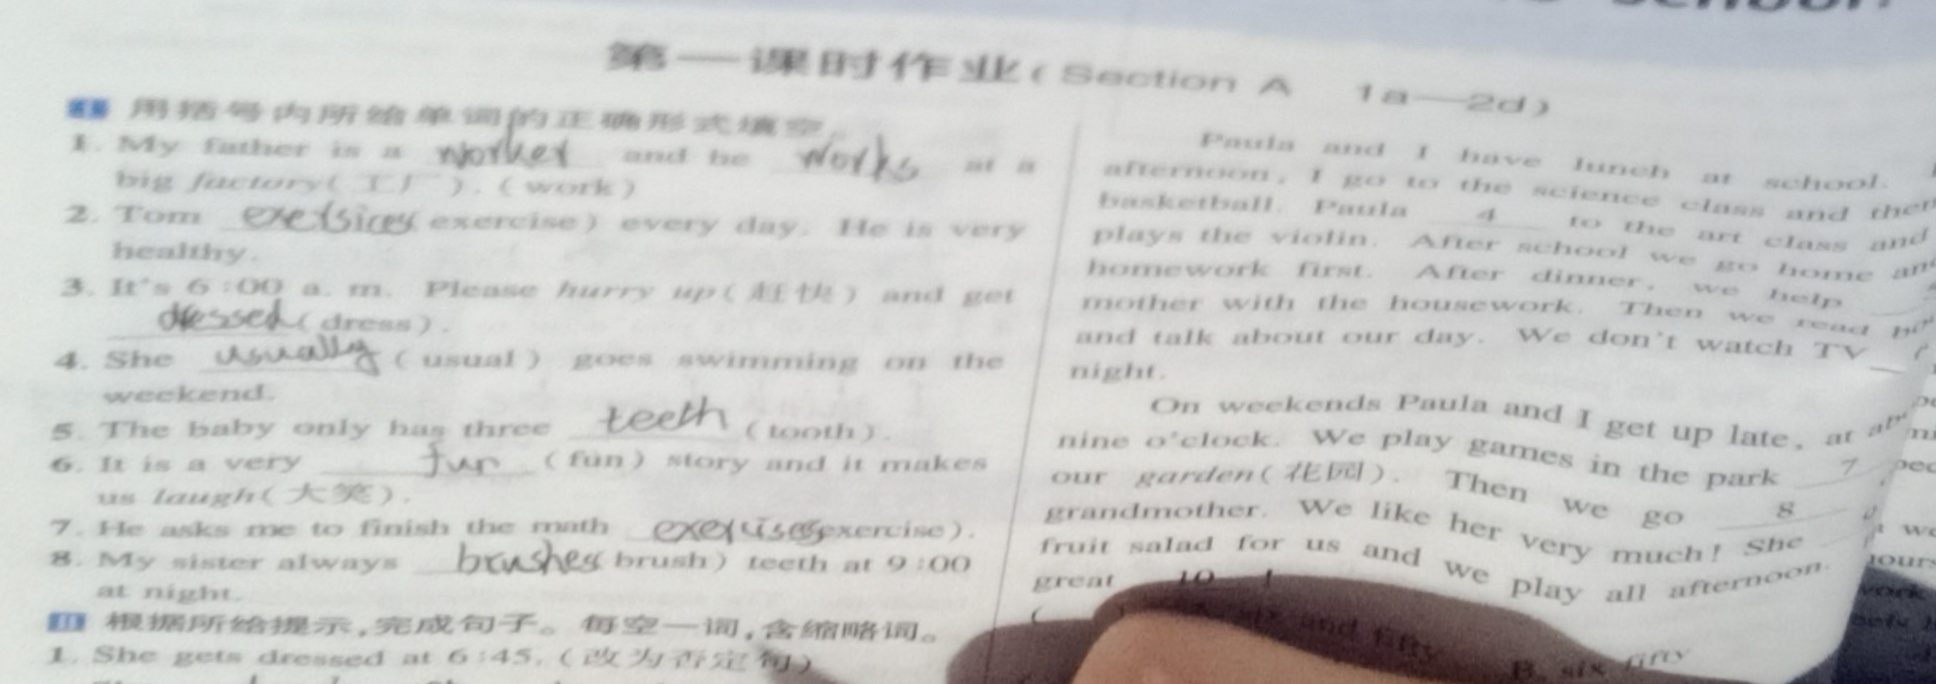 第一课时作业(Section A 1a—2d)
用括号内所给单词的正确形式填空。
1. My father is a worker and he works at a
big factory(工厂). (work)
2. Tom exersices exercise) every day. He is very
healthy.
3. It's 6:00 a. m. Please hurry up(赶快) and get
dressed (dress).
4. She usually (usual) goes swimming on the
weekend.
5. The baby only has three teeth (tooth).
6. It is a very fun (fun) story and it makes
us laugh(大笑).
7. He asks me to finish the math exercises exercise).
8. My sister always brushes brush) teeth at 9:00
at night.
II 根据所给提示,完成句子。每空一词,含缩略词。
1. She gets dressed at 6:45. (改为否定句)
Paula and I have lunch at school.
afternoon, I go to the science class and then
basketball. Paula 4 to the art class and
plays the violin. After school we go home and
homework first. After dinner, we help
mother with the housework. Then we read
and talk about our day. We don't watch TV
night.
On weekends Paula and I get up late, at
nine o'clock. We play games in the park 7
our garden(花园). Then we go 8
grandmother. We like her very much! She
fruit salad for us and we play all afternoon.
great 10 !
and fifty B. six fifty